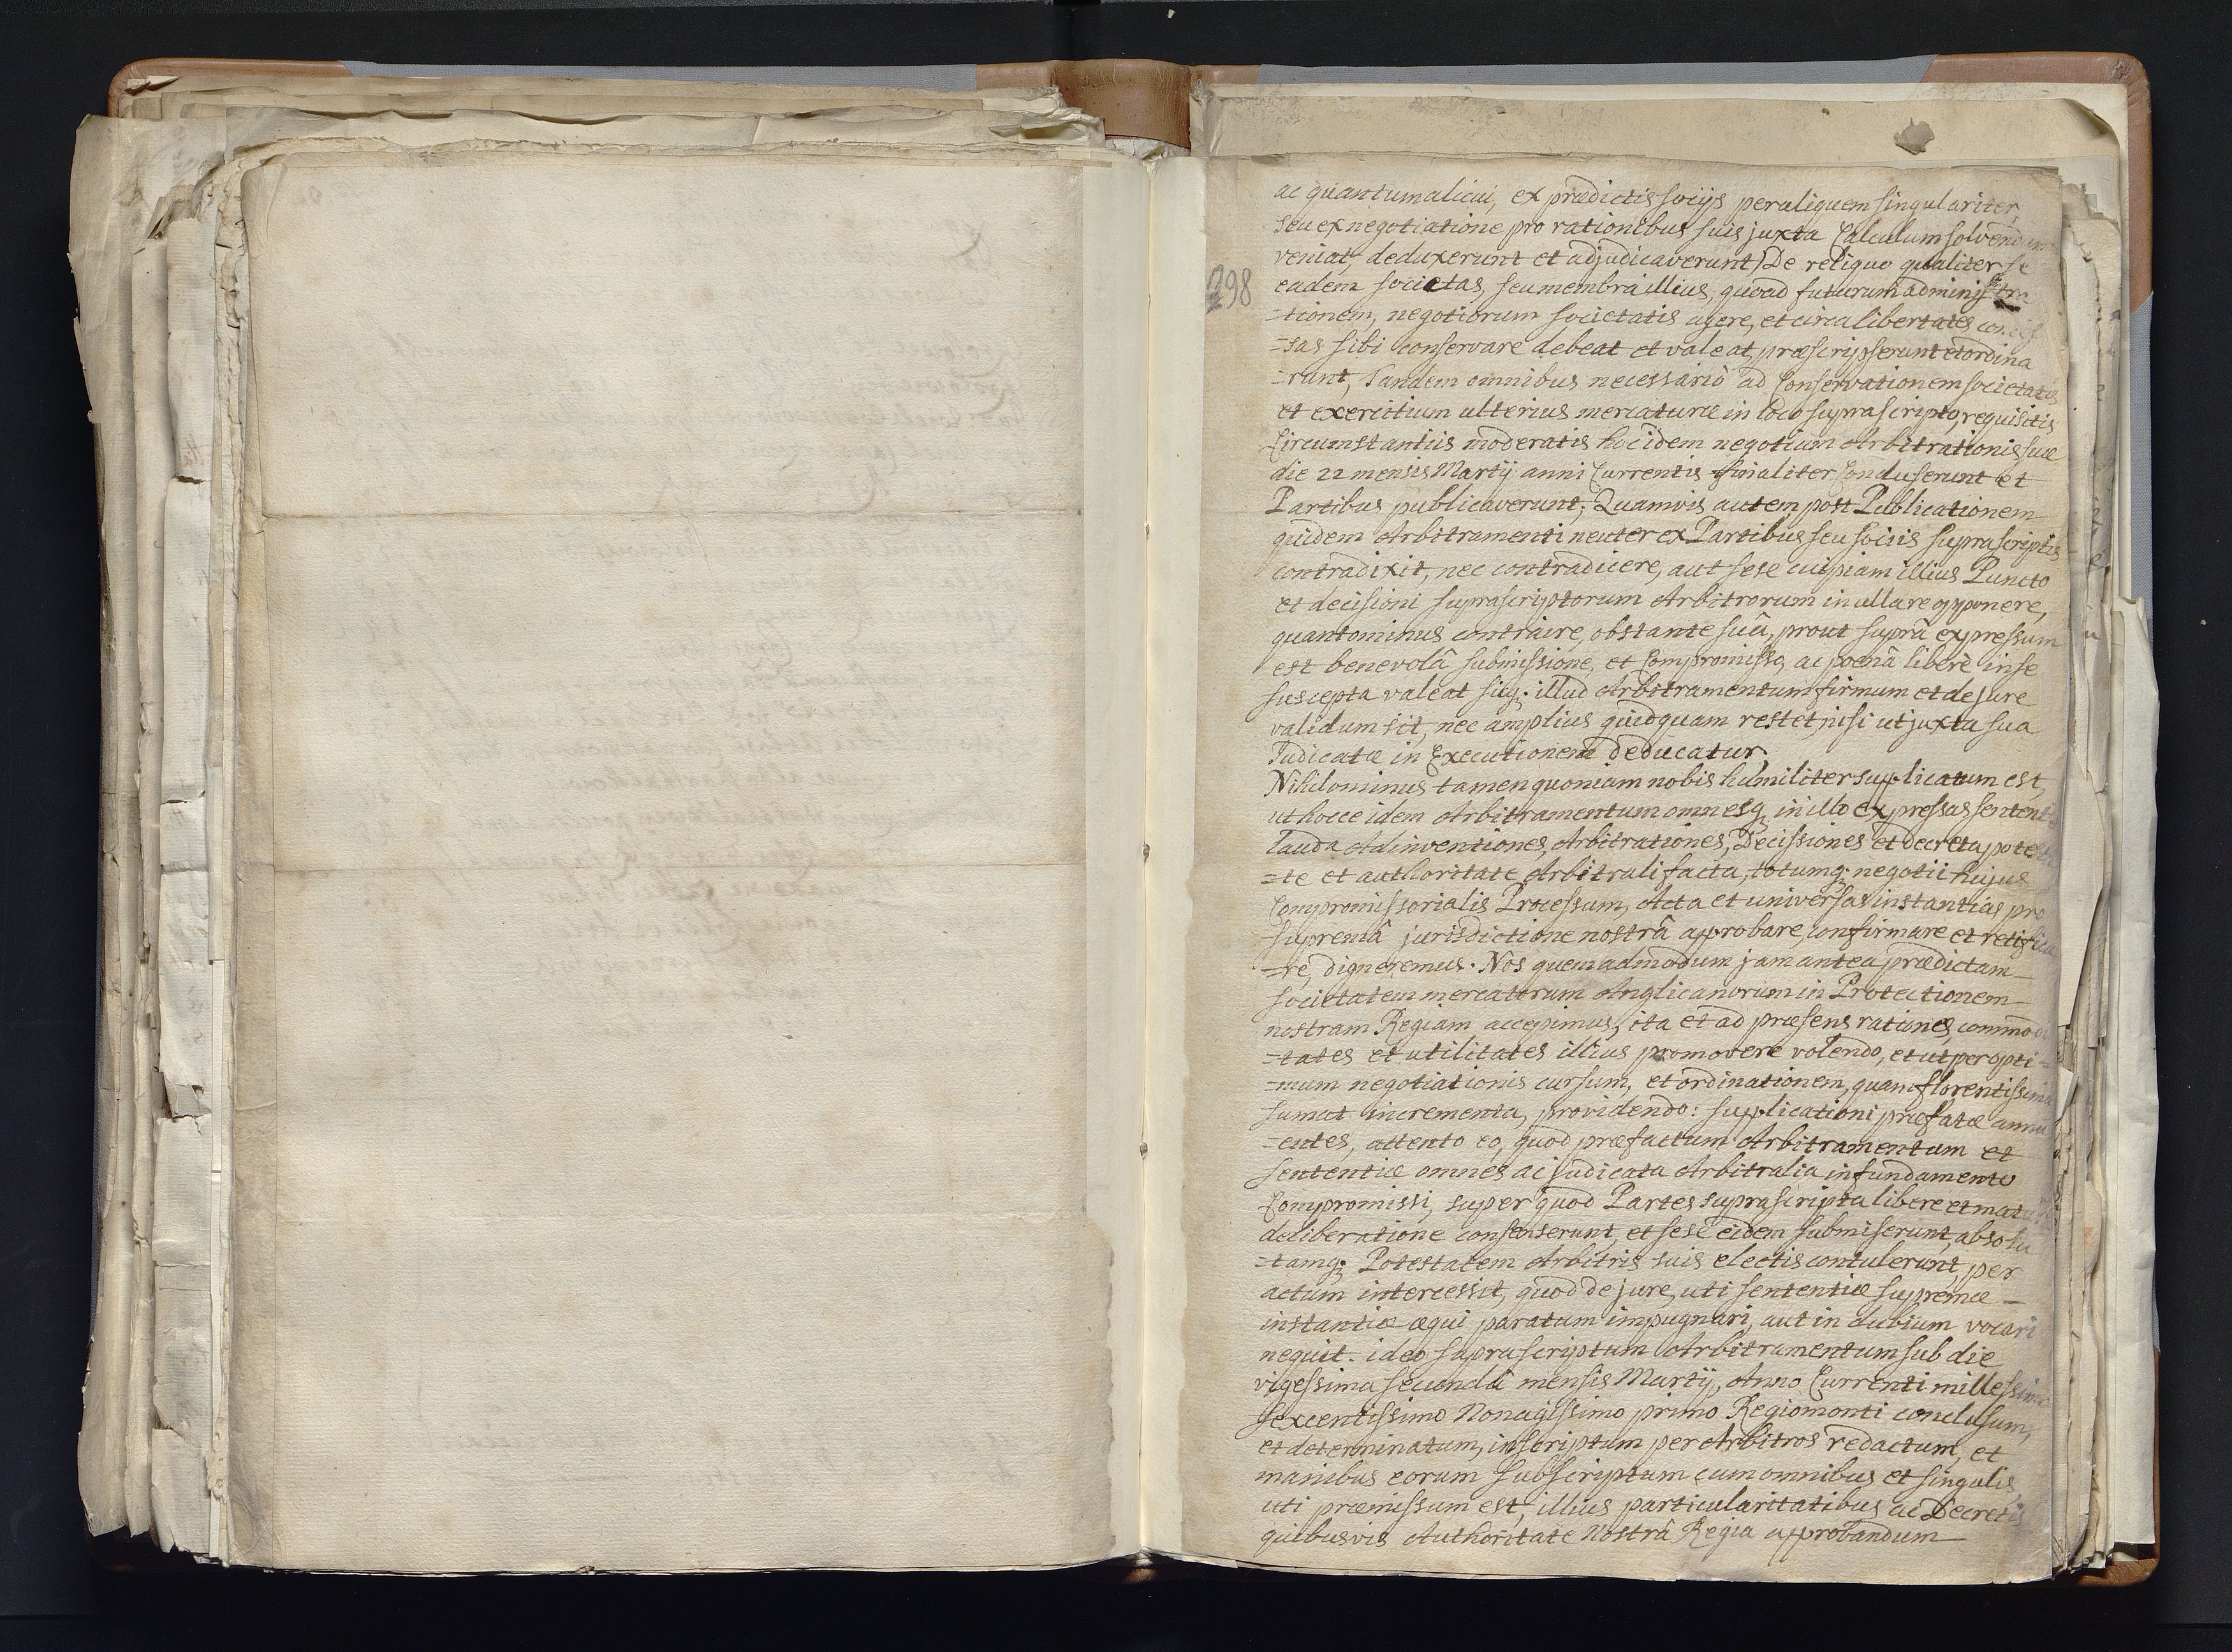 ac quantum alicui, ex prædictis socijs per aliquem singulariter,
seu ex negotiatione pro rationibus suis juxta Calculum solvendum
veniat, deduxerunt et adjudicaverunt, De reliquo qualiter se
298
eadem societas, seu membra illius, quoad futuram administra
=tionem, negotiorum societatis agere, et circa libertates conces
=sas sibi conservare debeat et valeat, præscripserunt et ordina
=runt, Tandem omnibus necessariò ad Conservationem societatis
et exercitium ulterius mercaturæ in loco suprascripto, requisitis
Circumstantiis moderatis hoc idem negotium Arbitrationis suæ
die 22 mensis Martij anni Currentis finaliter Concluserunt et
Partibus publicaverunt; Quamvis autem post Publicationem
quidem Arbitramenti neuter ex Partibus seu sociis suprascriptis
contradixit, nec contradicere, aut sese cuipiam illius Puncto
et decisioni suprascriptorum Arbitrorum in ulla re opponere,
quantominus contraire, obstante suâ, prout suprâ expressum
est benevolâ submissione, et Compromisso, ac poenâ liberè in se
suscepta valeat sicq; illud Arbitramentum firmum et de jure
validum sit, nec amplius quidquam restet, nisi ut juxta sua
Judicata in Executionem deducatur,
Nihilominus tamen quoniam nobis humiliter supplicatum est,
ut hocce idem Arbitramentum omnesq; in illo expressas sententi
lauda Adinventiones, Arbitrationes, Decissiones et decreta potesta
=te et authoritate Arbitrali facta, totumq; negotii hujus
Compromissorialis Processum, Acta et universas instantias pro
supremâ jurisdictione nostrâ approbare, confirmare et ratifica
=re, digneremus. Nos quemadmodum jam antea prædictam
societatem mercatorum Anglicanorum in Protectionem
nostram Regiam accepimus, ita et ad præsens rationes, commodi
=tates et utilitates illius promovere volendo, et ut per opti=
=mum negotiationis cursum, et ordinationem, quam florentissima
sumat incrementa, providendo: supplicationi præfatæ annu
=entes, attento eo, quod præfactum Arbitramentum et
sententiæ omnes ac judicata Arbitralia in fundamento
Compromissi, super quod Partes suprascripta libere et matura
deliberatione consenserunt, et sese eidem submiserunt, absolu
=tamq; Potestatem Arbitris suis electis contulerunt, per
actum intercessit, quod de jure, uti sententiæ supremæ
instantiæ æqui paratum impugnari, aut in dubium vocari
nequit. ideo suprascriptum Arbitramentum sub die
vigessima secundâ mensis Martij, Anno Currenti millessimo
sexcentissimo Nonagissimo primo Regiomonti conclusum,
et determinatum, in scriptum per Arbitros redactum, et
manibus eorum subscriptum cum omnibus et singulis,
uti præmissum est, illius particularitatibus ac Decretis
quibusvis Authoritate Nostrâ Regia approbandum